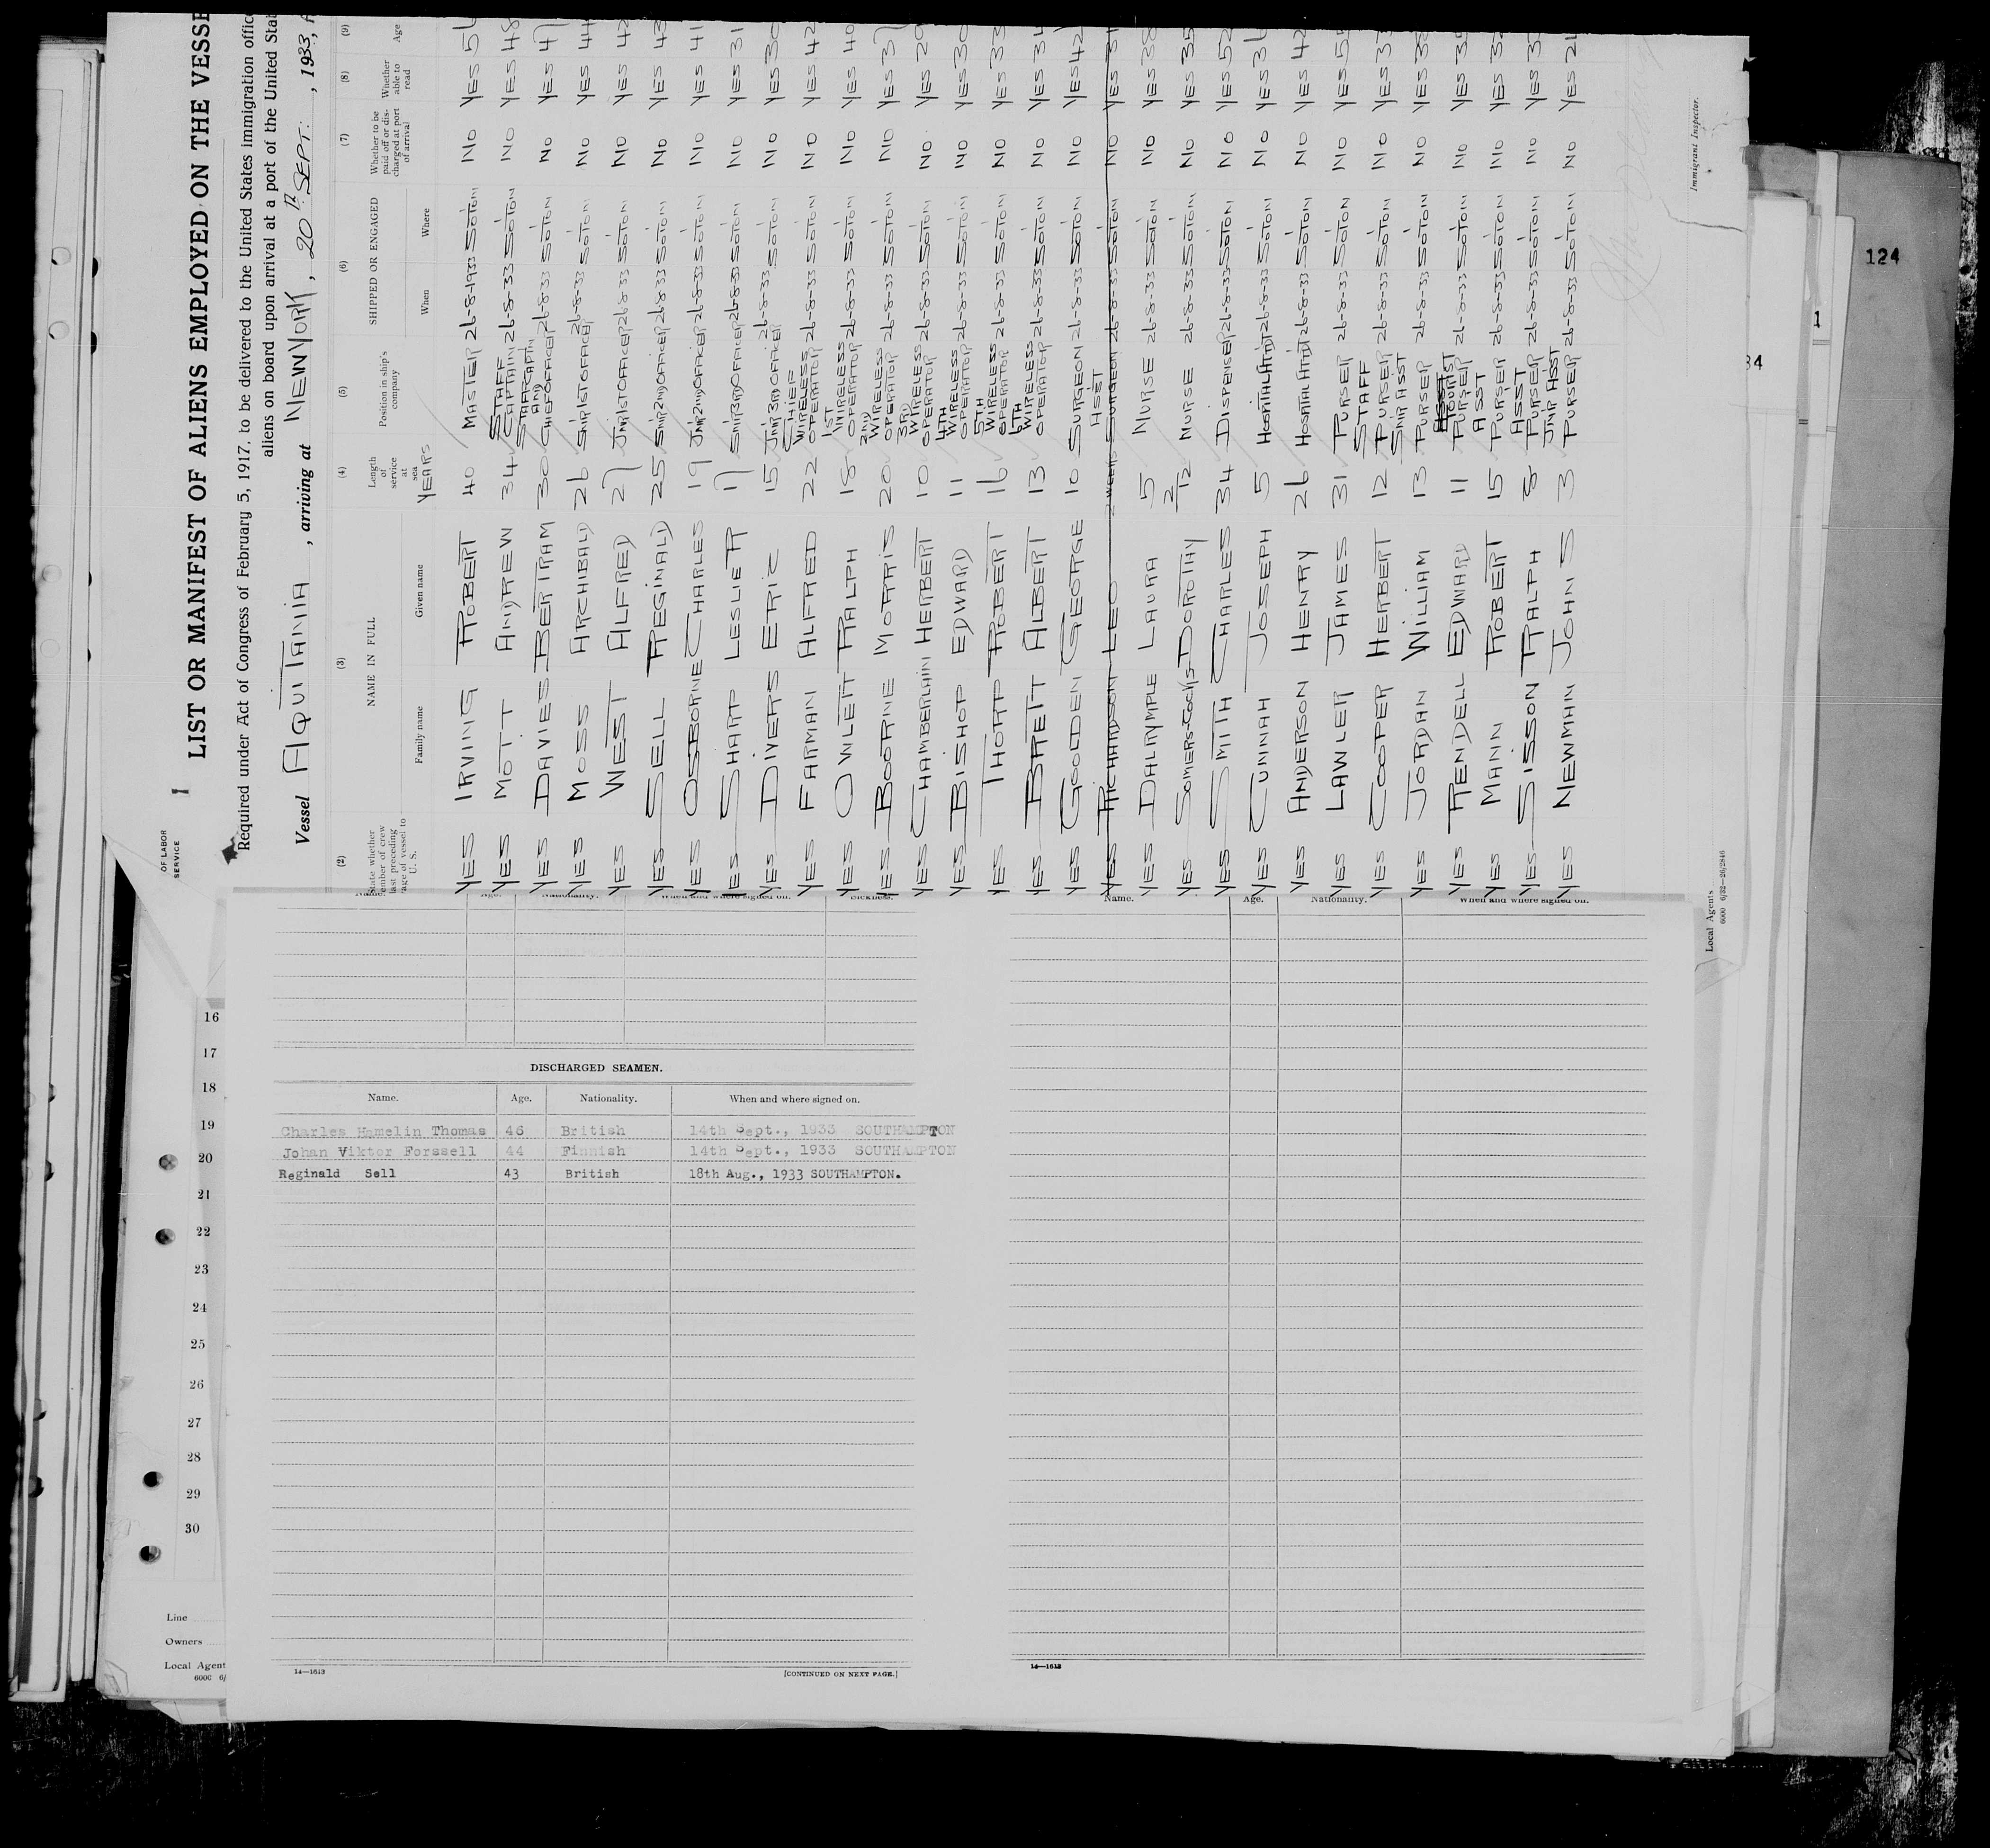 LIST OR MANIFEST OF ALIENS EMPLOYED ON THE VESSE
Required under Act of Congress of February 5, 1917, to be delivered to the United States immigration office
aliens on board upon arrival at a port of the United Stat
Vessel AQUITANIA, arriving at NEW YORK, 20TH SEPT., 1933,
OF LABOR
SERVICE
1
(2) (3) (4) (5) (6) (7) (8) (9)
State whether member of crew last preceding voyage of vessel to U. S. NAME IN FULL Family name Given name Length of service at sea YEARS Position in ship's company SHIPPED OR ENGAGED When Where Whether to be paid off or discharged at port of arrival Whether able to read Age
YES IRVING ROBERT 40 MASTER 26-8-1933 SOTON NO YES
YES MOTT ANDREW 34 STAFF CAPTAIN 26-8-33 SOTON NO YES 48
YES DAVIES BERTRAM 30 STAFF CAPTN AND CHIEF OFFICER 26-8-33 SOTON NO YES 47
YES MOSS ARCHIBALD 26 SNR 1ST OFFICER 26-8-33 SOTON NO YES 44
YES WEST ALFRED 27 JNR 1ST OFFICER 26-8-33 SOTON NO YES 42
YES SELL REGINALD 25 SNR 2ND OFFICER 26-8-33 SOTON NO YES 43
YES OSBORNE CHARLES 19 JNR 2ND OFFICER 26-8-33 SOTON NO YES 41
YES SHARP LESLIE R 17 SNR 3RD OFFICER 26-8-33 SOTON NO YES 31
YES DIVERS ERIC 15 JNR 3RD OFFICER 26-8-33 SOTON NO YES 30
YES FARMAN ALFRED 22 CHIEF WIRELESS OPERATOR 26-8-33 SOTON NO YES 42
YES OWLETT RALPH 18 1ST WIRELESS OPERATOR 26-8-33 SOTON NO YES 40
YES BOORNE MORRIS 20 2ND WIRELESS OPERATOR 26-8-33 SOTON NO YES 37
YES CHAMBERLAIN HERBERT 10 3RD WIRELESS OPERATOR 26-8-33 SOTON NO YES 29
YES BISHOP EDWARD 11 4TH WIRELESS OPERATOR 26-8-33 SOTON NO YES 30
YES THORP ROBERT 16 5TH WIRELESS OPERATOR 26-8-33 SOTON NO YES 33
YES BRETT ALBERT 13 6TH WIRELESS OPERATOR 26-8-33 SOTON NO YES 34
YES GOOLDEN GEORGE 10 SURGEON 26-8-33 SOTON NO YES 42
YES RICHARDSON LEO 2 WEEKS ASST SURGEON 26-8-33 SOTON NO YES 31
YES DALRYMPLE LAURA 5 NURSE 26-8-33 SOTON NO YES 38
YES SOMERS-COCKS DOROTHY 2/12 NURSE 26-8-33 SOTON NO YES 35
YES SMITH CHARLES 34 DISPENSER 26-8-33 SOTON NO YES 52
YES CUNNAH JOSEPH 5 HOSPITAL ATTDT 26-8-33 SOTON NO YES 36
YES ANDERSON HENRY 26 HOSPITAL ATTDT 26-8-33 SOTON NO YES 42
YES LAWLER JAMES 31 PURSER 26-8-33 SOTON NO YES 55
YES COOPER HERBERT 12 STAFF PURSER 26-8-33 SOTON NO YES 33
YES JORDAN WILLIAM 13 SNR ASST PURSER 26-8-33 SOTON NO YES 38
YES RENDELL EDWARD 11 ASST TOURIST PURSER 26-8-33 SOTON NO YES
YES MANN ROBERT 15 ASST PURSER 26-8-33 SOTON NO YES
YES SISSON RALPH 8 ASST PURSER 26-8-33 SOTON NO YES
YES NEWMAN JOHN S 3 JNR ASST PURSER 26-8-33 SOTON NO YES
Immigrant Inspector.
Local Agents
6000 6/32—26/32846
Name. Age. Nationality. When and where signed on. Sickness.
DISCHARGED SEAMEN.
Name. Age. Nationality. When and where signed on.
Charles Hamelin Thomas 46 British 14th Sept., 1933 SOUTHAMPTON
Johan Viktor Forssell 44 Finnish 14th Sept., 1933 SOUTHAMPTON
Reginald Sell 43 British 18th Aug., 1933 SOUTHAMPTON.
14—1613
[CONTINUED ON NEXT PAGE.]
Name. Age. Nationality. When and where signed on.
14—1613
16
17
18
19
20
21
22
23
24
25
26
27
28
29
30
Line
Owners
Local Agent
6000 6/
124
1
34